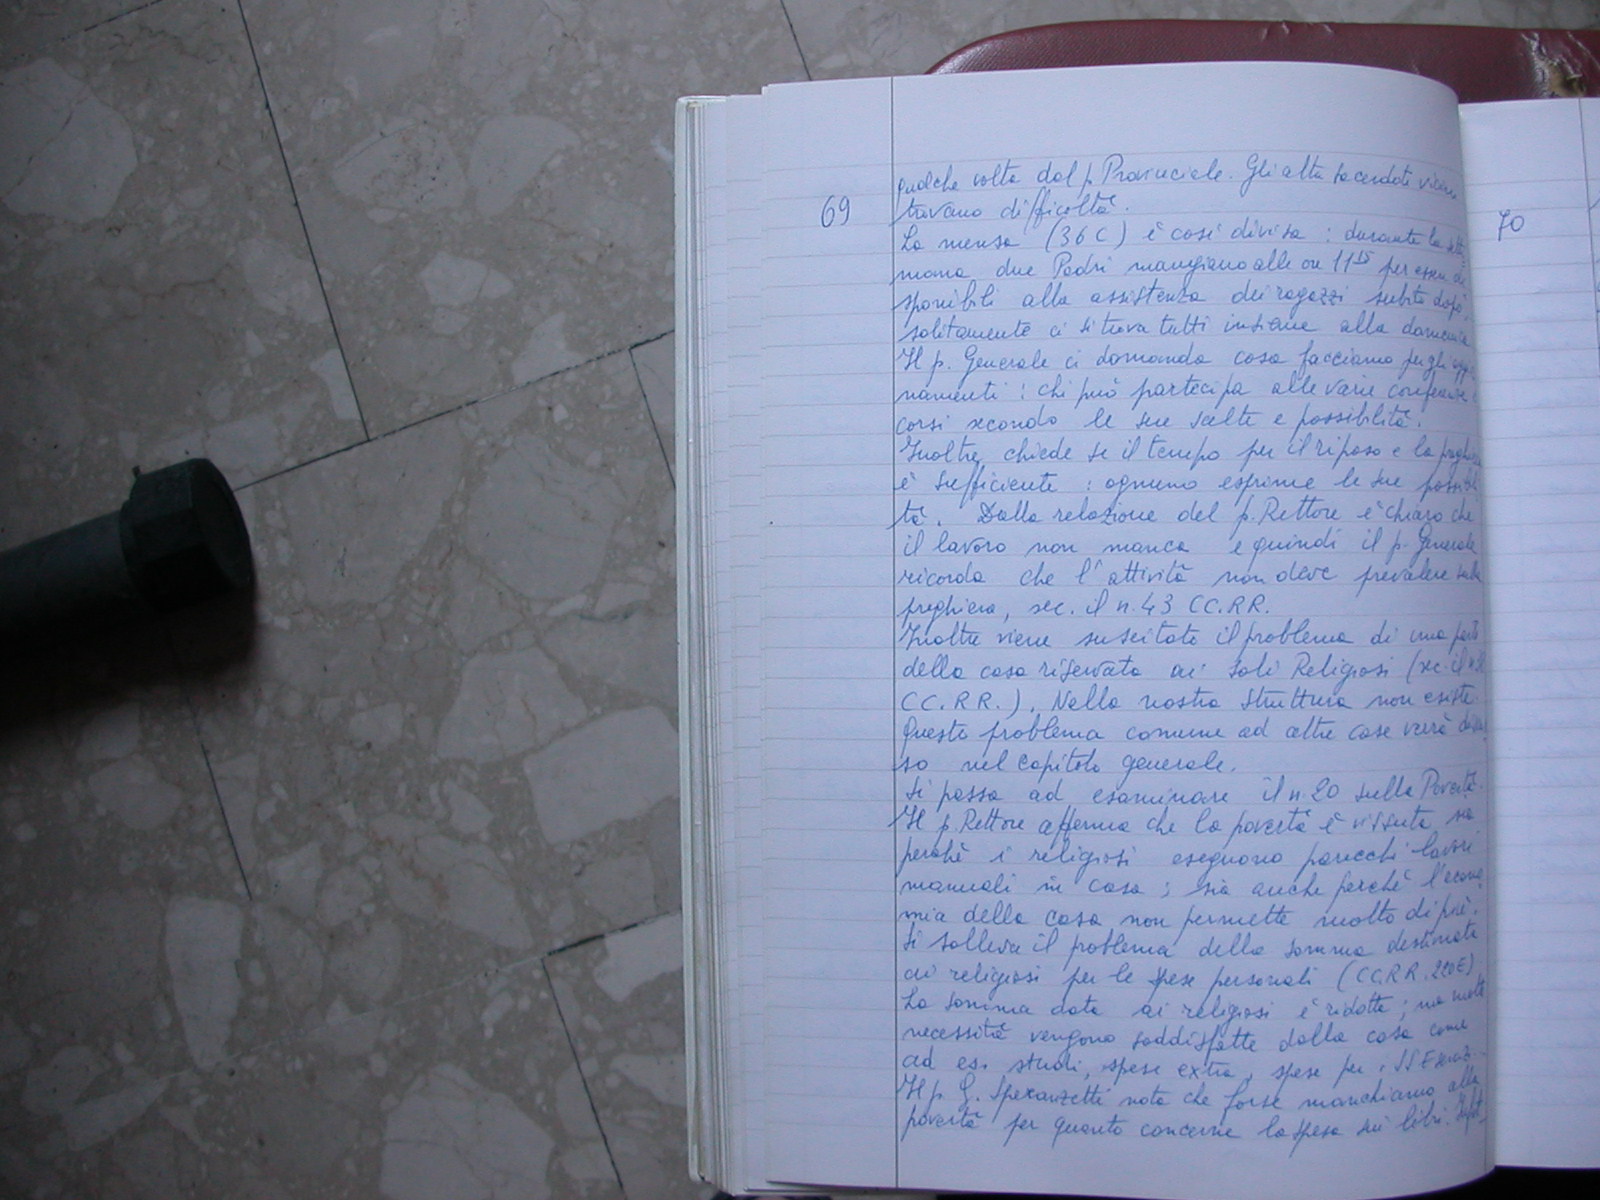 69
qualche volta dal p. Provinciale. Gli altri sacerdoti
tavano difficoltà.
La mensa (36 C) è così divisa: durante la
mana due Padri mangiano alle ore 11 15 per essere
sponibili alla assistenza dei ragazzi subito dopo,
solitamente ci si trova tutti insieme alla domenica
Il p. Generale ci domanda cosa facciamo per gli
namenti: chi può partecipa alle varie conferenze
corsi secondo le sue scelte e possibilità.
Inoltre, chiede se il tempo per il riposo e la
è sufficiente: ognuno esprime le sue possibili
tà. Dalla relazione del p. Rettore è chiaro che
il lavoro non manca e quindi il p. Generale
ricorda che l'attività non deve prevalere sulla
preghiera, sec. il n. 43 CC.RR.
Inoltre viene suscitato il problema di una parte
della casa riservata ai soli Religiosi (sec. il n.
CC.RR.). Nella nostra struttura non esiste.
Questo problema comune ad altre case verrà
so nel capitolo generale.
Si passa ad esaminare il n. 20 sulla Povertà.
Il p. Rettore afferma che la povertà è vissuta sia
perché i religiosi eseguono parecchi lavori
manuali in casa; sia anche perché l'econo
mia della casa non permette molto di più.
Si solleva il problema della somma destinata
ai religiosi per le spese personali (CC.RR. 220E)
La somma data ai religiosi è ridotta; ma molte
necessità vengono soddisfatte dalla casa come
ad es. studi, spese extra, spese per i SS
Il p. G. Speranzetti nota che forse manchiamo alla
povertà per quanto concerne la spesa sui libri.
70